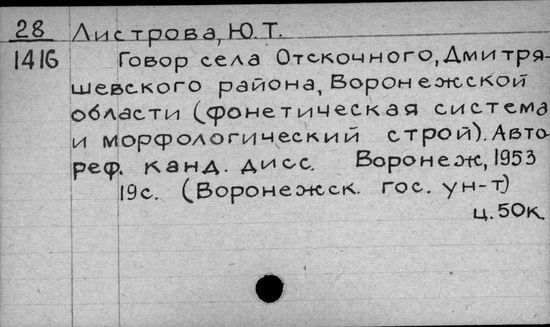 28 Листрова, Ю.Т.
1416 Говор села Отскочного, Дмитря-
шевского района, Воронежской
области (фонетическая система
и морфологический строй). Авто-
реф. канд. дисс. Воронеж, 1953
19с. (Воронежск. гос. ун-т)
ц. 50к.